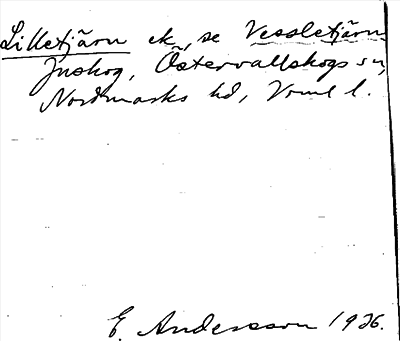 Lilletjärn ek, se Vessletjärn
Juskog, Östervallskogs sn,
Nordmarks hd, Vrml l.
E. Andersson 1926.